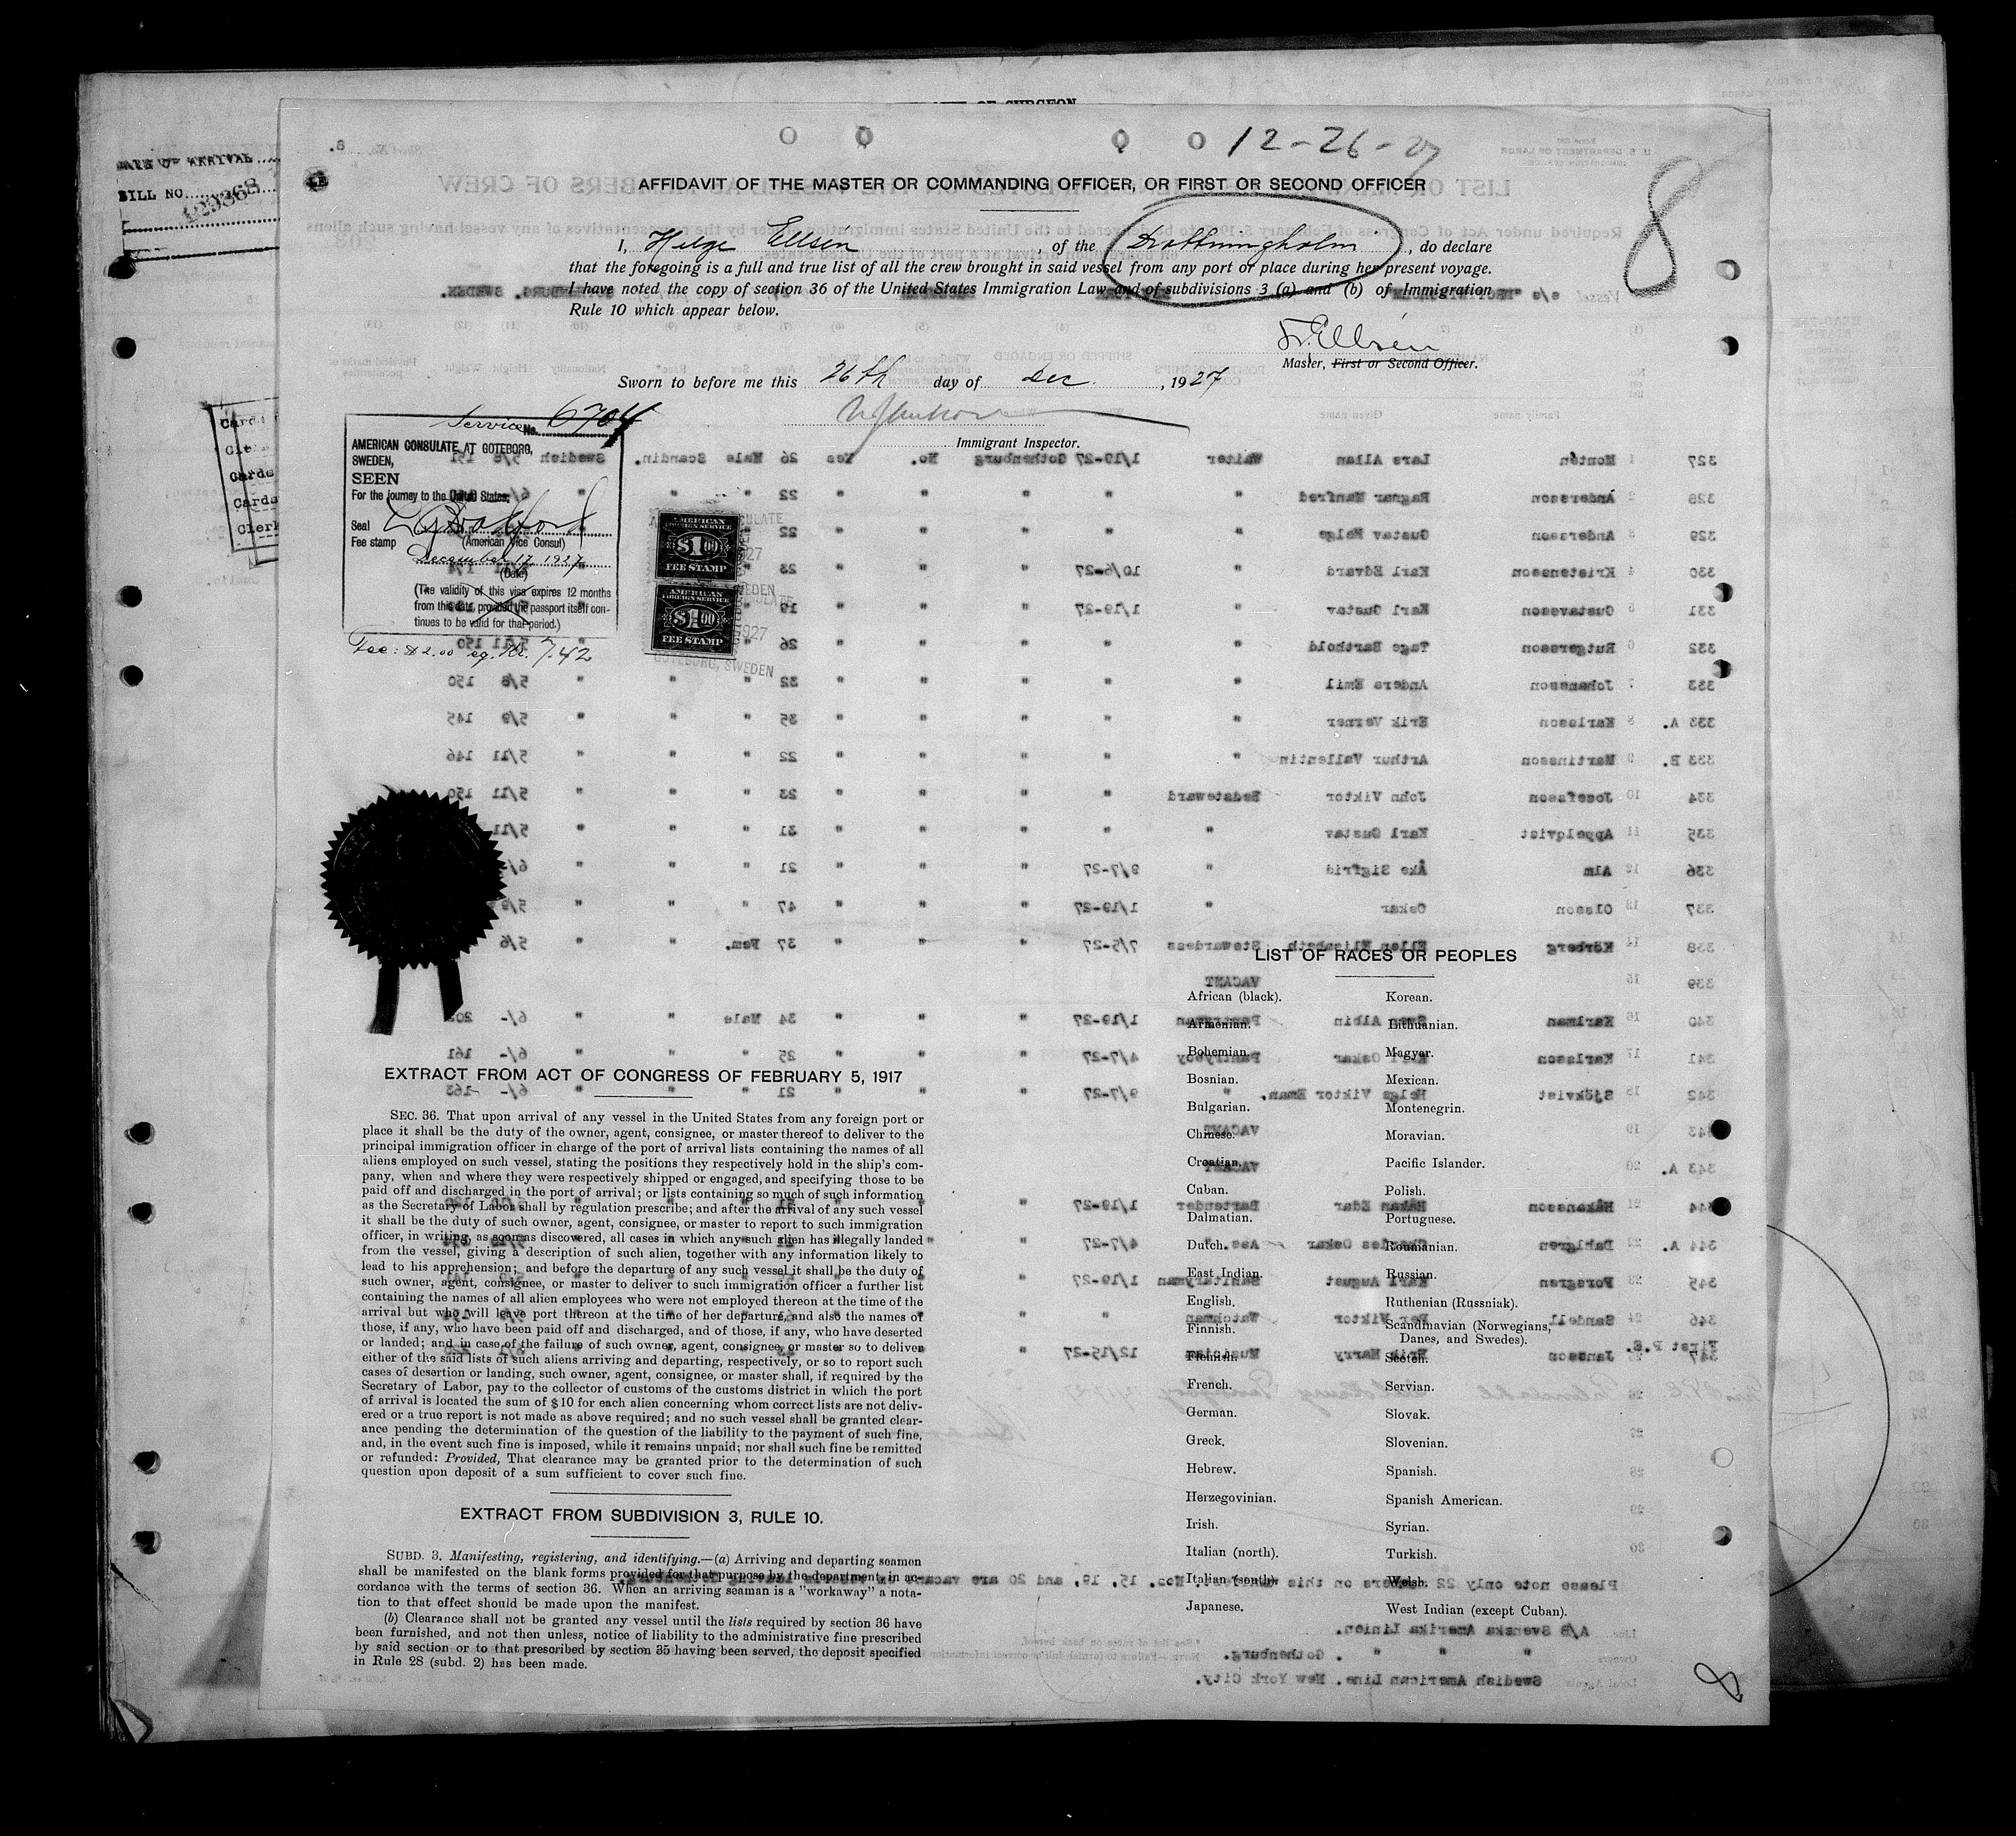 12-26-27
8
AFFIDAVIT OF THE MASTER OR COMMANDING OFFICER, OR FIRST OR SECOND OFFICER
I, Helge Ellsén, of the Drottningholm, do declare
that the foregoing is a full and true list of all the crew brought in said vessel from any port or place during her present voyage.
I have noted the copy of section 36 of the United States Immigration Law and of subdivisions 3 (a) and (b) of Immigration
Rule 10 which appear below.
Master, First or Second Officer.
Sworn to before me this 26th day of Dec., 1927
Immigrant Inspector.
BILL NO.
Service No. 6704
AMERICAN CONSULATE AT GOTEBORG,
SWEDEN,
SEEN
For the journey to the United States,
Seal
Fee stamp (American Vice Consul)
December 17, 1927
(Date)
(The validity of this visa expires 12 months
from this date, provided the passport itself con-
tinues to be valid for that period.)
Fee: $2.00 eq. Kr. 7.42
AMERICAN
FOREIGN SERVICE
$1.00
FEE STAMP
AMERICAN
FOREIGN SERVICE
$1.00
FEE STAMP
GOTEBORG, SWEDEN
327 1 Montén Lars Allan Waiter 1/19-27 Gothenburg No. Yes 26 Male Scandin. Swedish 5/8 151
328 2 Andersson Ragnar Manfred " " " " " 22 " " "
329 3 Andersson Gustav Helge " " " " " 22
330 4 Kristensson Karl Edvard " 10/5-27 " " " 23
331 5 Gustavsson Karl Gustav " 1/19-27 " " " 19
332 6 Rutgersson Tage Barthold " " " " " 26 " 5/11 150
333 7 Johansson Anders Emil " " " " " 32 " " " 5/8 150
333 A. 8 Karlsson Erik Verner " " " " " 35 " " " 5/9 145
333 B. 9 Martinsson Arthur Vallentin " " " " " 22 " " " 5/11 146
334 10 Josefsson John Viktor Bedsteward " " " " 23 " " " 5/11 150
335 11 Appelqvist Karl Gustav " " " " " 31 " " " 5/11
336 12 Alm Åke Sigfrid " 9/7-27 " " " 21 " " " 6/-
337 13 Olsson Oskar " 1/19-27 " " " 47 " " " 5/9
338 14 Körberg Ellen Elisabeth Stewardess 7/5-27 " " " 37 Fem. " " 5/6
339 15 VACANT
340 16 Karlman Sven Albin Pantryman 1/19-27 " " " 34 Male " " 6/-
341 17 Karlsson Karl Oskar Pantryboy 4/7-27 " " " 25 " " " 6/- 161
342 18 Sjökvist Helge Viktor Eman. " 9/7-27 " " " 21 " " " 6/- 163
343 19 VACANT
343 A. 20 VACANT
344 21 Håkansson Håkan Edar Bartender 1/19-27
344 A. 22 Dahlgren Charles Oskar Ass. " 4/7-27
345 23 Forsgren Karl August Sanitaryman 1/19-27
346 24 Sandell Per Viktor Watchman "
First P.S.
347 25 Jansson Erik Harry Musician 12/15-27
LIST OF RACES OR PEOPLES
African (black).
Armenian.
Bohemian.
Bosnian.
Bulgarian.
Chinese.
Croatian.
Cuban.
Dalmatian.
Dutch.
East Indian.
English.
Finnish.
Flemish.
French.
German.
Greek.
Hebrew.
Herzegovinian.
Irish.
Italian (north).
Italian (south).
Japanese.
Korean.
Lithuanian.
Magyar.
Mexican.
Montenegrin.
Moravian.
Pacific Islander.
Polish.
Portuguese.
Roumanian.
Russian.
Ruthenian (Russniak).
Scandinavian (Norwegians,
Danes, and Swedes).
Scotch.
Servian.
Slovak.
Slovenian.
Spanish.
Spanish American.
Syrian.
Turkish.
Welsh.
West Indian (except Cuban).
EXTRACT FROM ACT OF CONGRESS OF FEBRUARY 5, 1917
SEC. 36. That upon arrival of any vessel in the United States from any foreign port or
place it shall be the duty of the owner, agent, consignee, or master thereof to deliver to the
principal immigration officer in charge of the port of arrival lists containing the names of all
aliens employed on such vessel, stating the positions they respectively hold in the ship's com-
pany, when and where they were respectively shipped or engaged, and specifying those to be
paid off and discharged in the port of arrival; or lists containing so much of such information
as the Secretary of Labor shall by regulation prescribe; and after the arrival of any such vessel
it shall be the duty of such owner, agent, consignee, or master to report to such immigration
officer, in writing, as soon as discovered, all cases in which any such alien has illegally landed
from the vessel, giving a description of such alien, together with any information likely to
lead to his apprehension; and before the departure of any such vessel it shall be the duty of
such owner, agent, consignee, or master to deliver to such immigration officer a further list
containing the names of all alien employees who were not employed thereon at the time of the
arrival but who will leave port thereon at the time of her departure, and also the names of
those, if any, who have been paid off and discharged, and of those, if any, who have deserted
or landed; and in case of the failure of such owner, agent, consignee, or master so to deliver
either of the said lists of such aliens arriving and departing, respectively, or so to report such
cases of desertion or landing, such owner, agent, consignee, or master shall, if required by the
Secretary of Labor, pay to the collector of customs of the customs district in which the port
of arrival is located the sum of $10 for each alien concerning whom correct lists are not deliv-
ered or a true report is not made as above required; and no such vessel shall be granted clear-
ance pending the determination of the question of the liability to the payment of such fine,
and, in the event such fine is imposed, while it remains unpaid; nor shall such fine be remitted
or refunded: Provided, That clearance may be granted prior to the determination of such
question upon deposit of a sum sufficient to cover such fine.
EXTRACT FROM SUBDIVISION 3, RULE 10.
SUBD. 3. Manifesting, registering, and identifying.—(a) Arriving and departing seamen
shall be manifested on the blank forms provided for that purpose by the department, in ac-
cordance with the terms of section 36. When an arriving seaman is a "workaway" a nota-
tion to that effect should be made upon the manifest.
(b) Clearance shall not be granted any vessel until the lists required by section 36 have
been furnished, and not then unless, notice of liability to the administrative fine prescribed
by said section or to that prescribed by section 35 having been served, the deposit specified
in Rule 28 (subd. 2) has been made.
A/B Svenska Amerika Linien.
" " " . Gothenburg.
Swedish American Line. New York City.
8